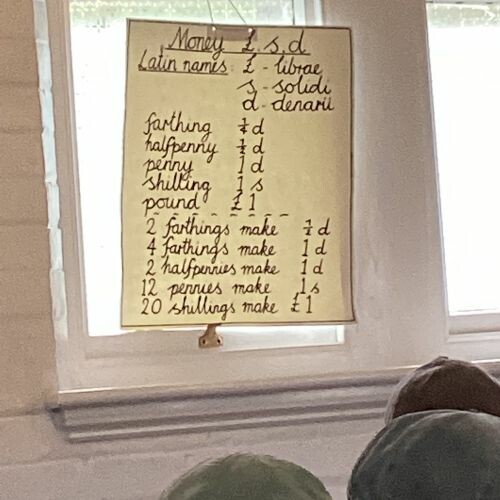 Money £.s.d
Latin names: £ - librae
s - solidi
d - denarii
farthing ¼ d
halfpenny ½ d
penny 1 d
shilling 1 s
pound £1
2 farthings make ½ d
4 farthings make 1 d
2 halfpennies make 1 d
12 pennies make 1 s
20 shillings make £1